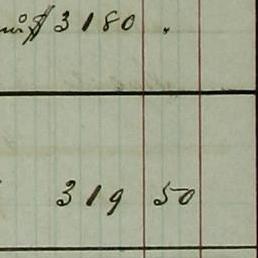 $ 3180 .
319 50